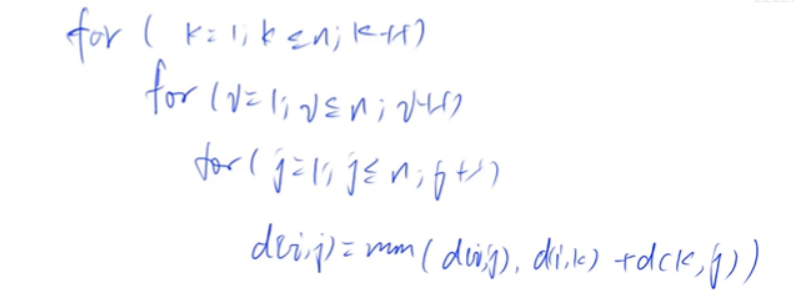 for ( k=1; k≤n; k++)
for (i=1; i≤n; i++)
for ( j=1; j≤n; j++)
d(i,j)=min( d(i,j), d(i,k) +d(k,j))